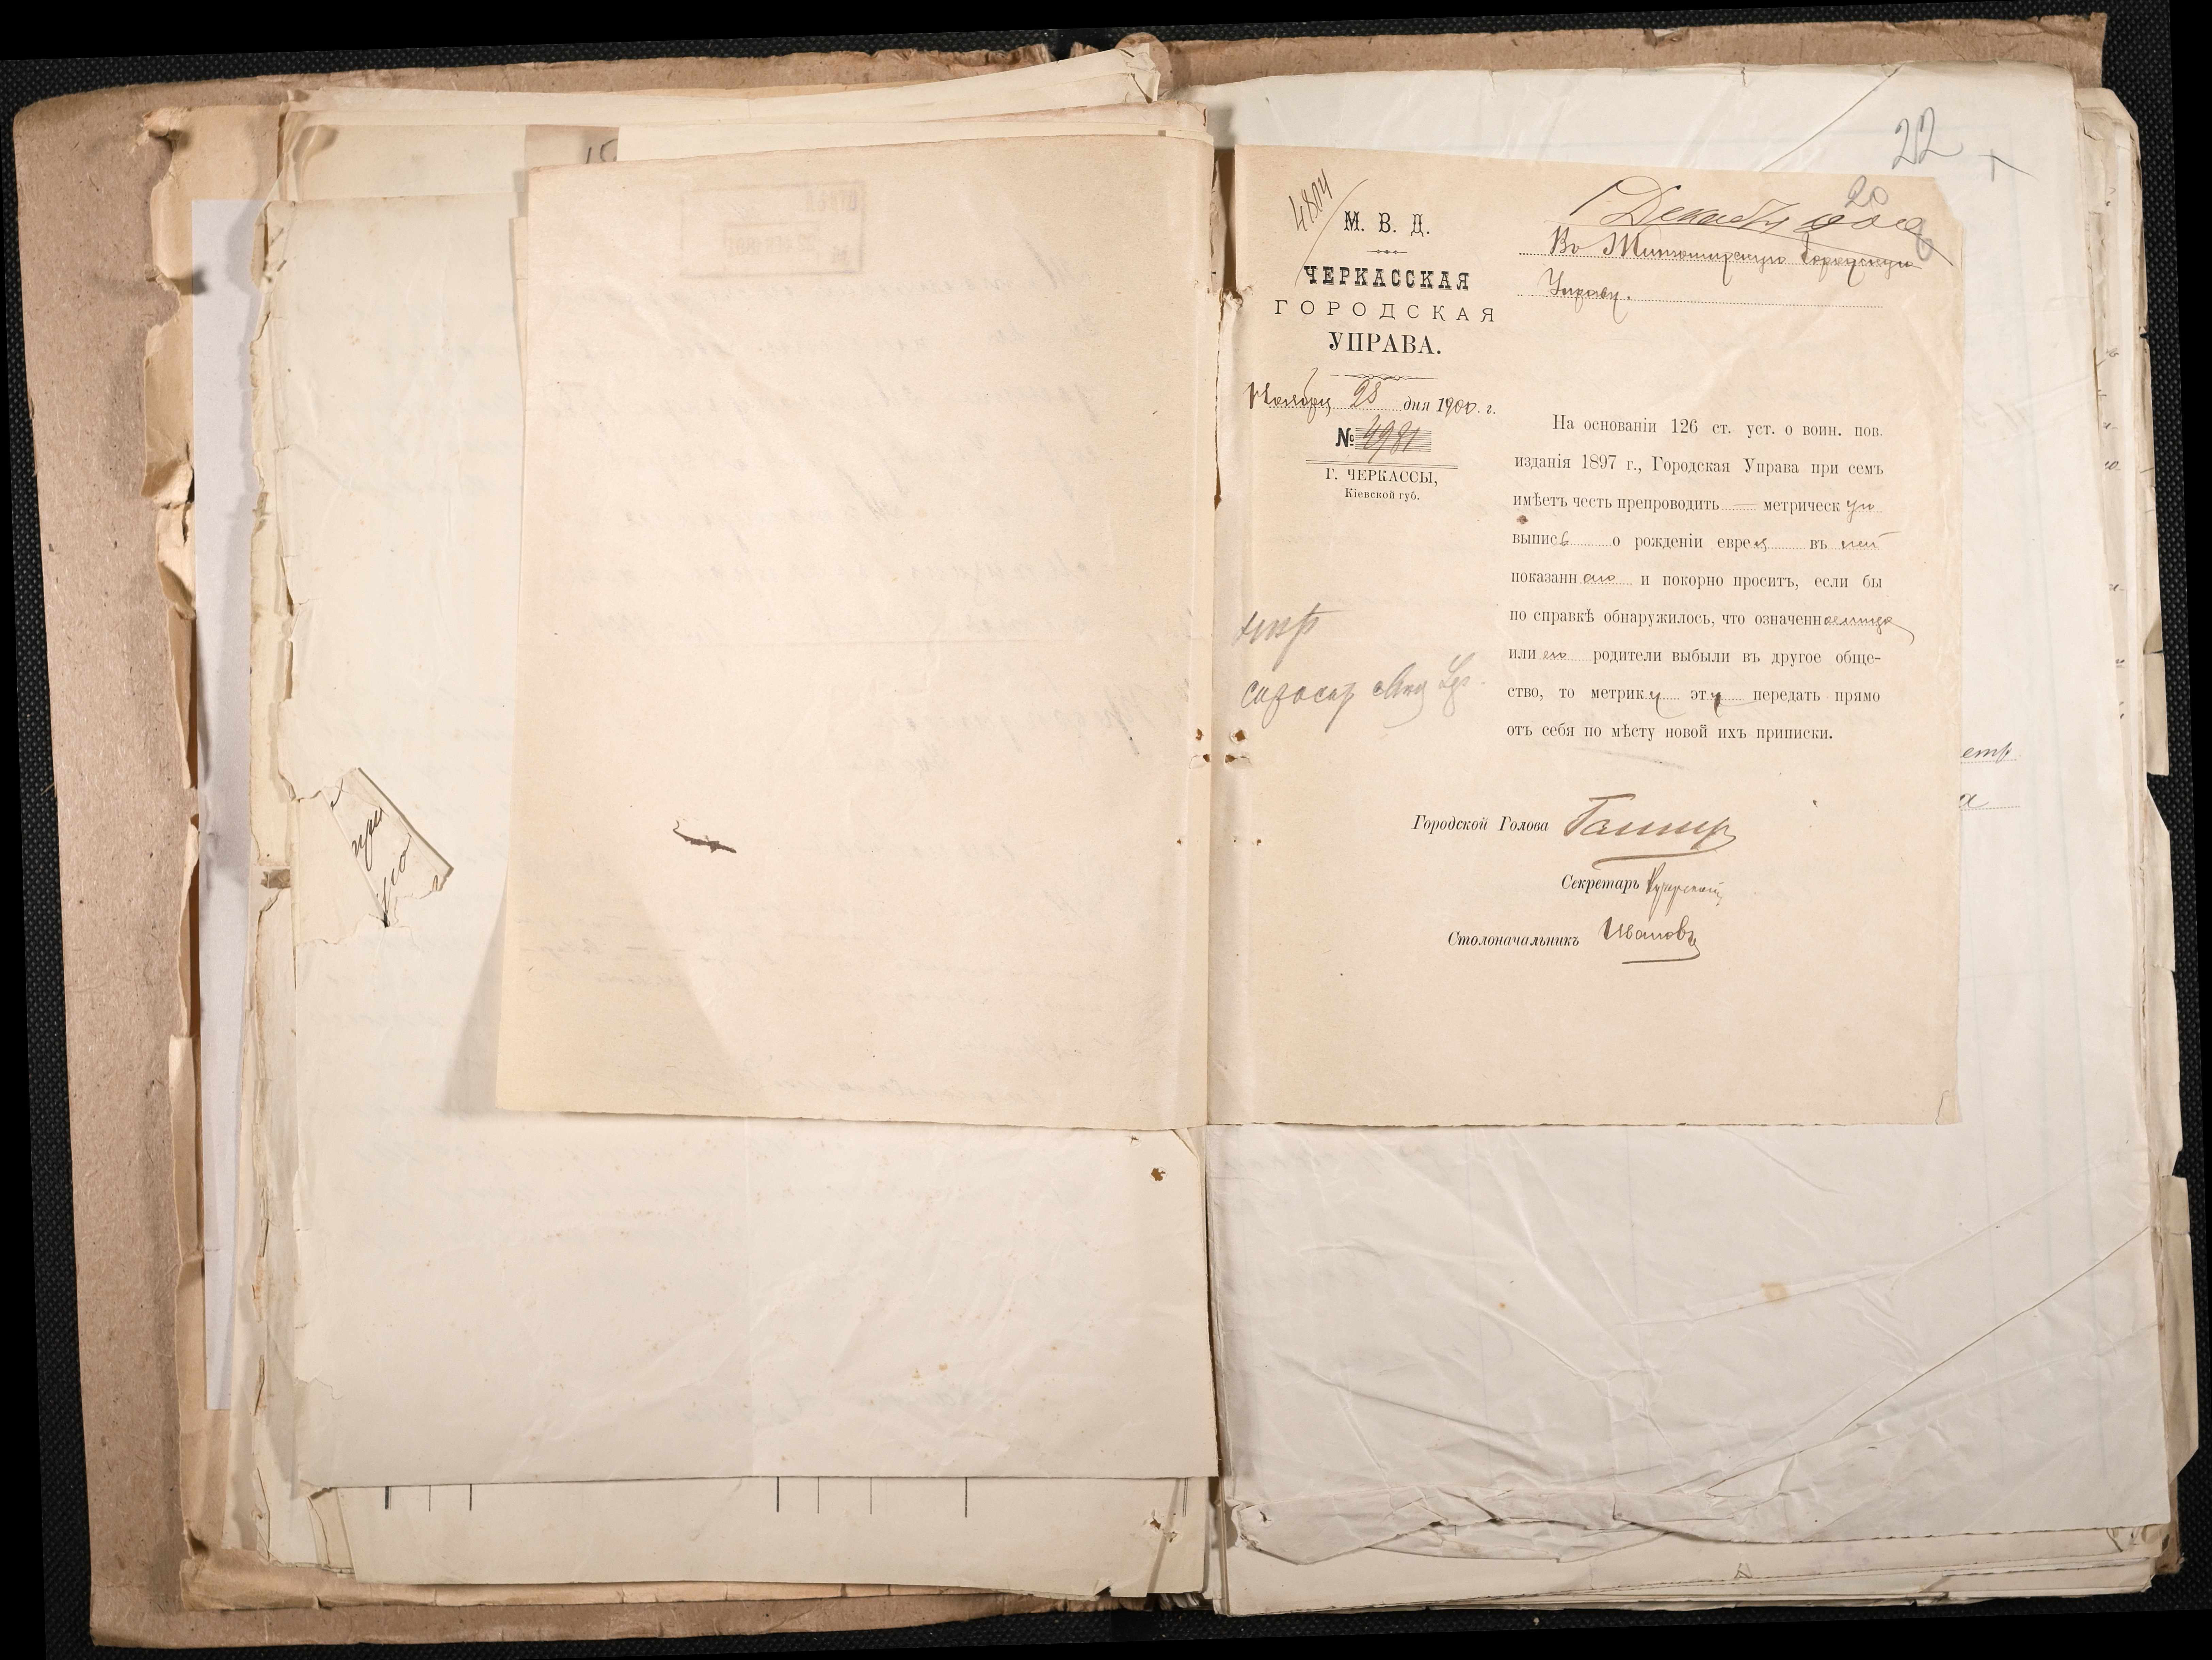 22
20
4804
1 Декабря 1900
М. В. Д.
ЧЕРКАССКАЯ
ГОРОДСКАЯ
УПРАВА.
Ноября 28 дня 1900. г.
№ 4981
Г. ЧЕРКАССЫ,
Кіевской губ.
Въ Житомирскую Городскую
Управу.
На основаніи 126 ст. уст. о воин. пов.
изданія 1897 г., Городская Управа при семъ
имѣетъ честь препроводить — метрическую
выпись о рожденіи еврея въ ней
показаннаго и покорно проситъ, если бы
по справкѣ обнаружилось, что означенное лицо
или его родители выбыли въ другое обще-
ство, то метрику эту передать прямо
отъ себя по мѣсту новой ихъ приписки.
Городской Голова
Секретарь
Столоначальникъ Ивановъ